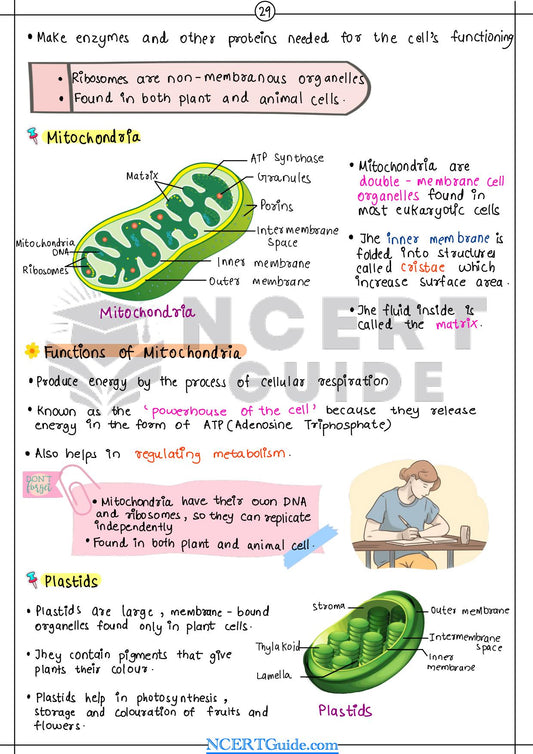 29
• Make enzymes and other proteins needed for the cell's functioning
• Ribosomes are non-membranous organelles
• Found in both plant and animal cells.
Mitochondria
ATP Synthase
Matrix
Granules
Porins
Intermembrane
Space
Mitochondria
DNA
Inner membrane
Ribosomes
Outer membrane
Mitochondria
• Mitochondria are
double-membrane cell
organelles found in
most eukaryotic cells
• The inner membrane is
folded into structures
called cristae which
increase surface area.
• The fluid inside is
called the matrix.
NCERT
GUIDE
Functions of Mitochondria
• Produce energy by the process of cellular respiration
• Known as the 'powerhouse of the cell' because they release
energy in the form of ATP (Adenosine Triphosphate)
• Also helps in regulating metabolism.
DON'T
forget
• Mitochondria have their own DNA
and ribosomes, so they can replicate
independently
• Found in both plant and animal cell.
Plastids
• Plastids are large, membrane-bound
organelles found only in plant cells.
• They contain pigments that give
plants their colour.
• Plastids help in photosynthesis,
storage and colouration of fruits and
flowers.
Stroma
Outer membrane
Intermembrane
space
Thylakoid
Inner
membrane
Lamella
Plastids
NCERTGuide.com